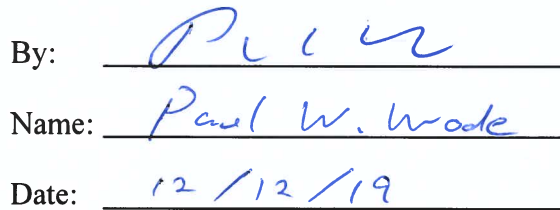 By:
Name: Paul W. Wode
Date: 12/12/19